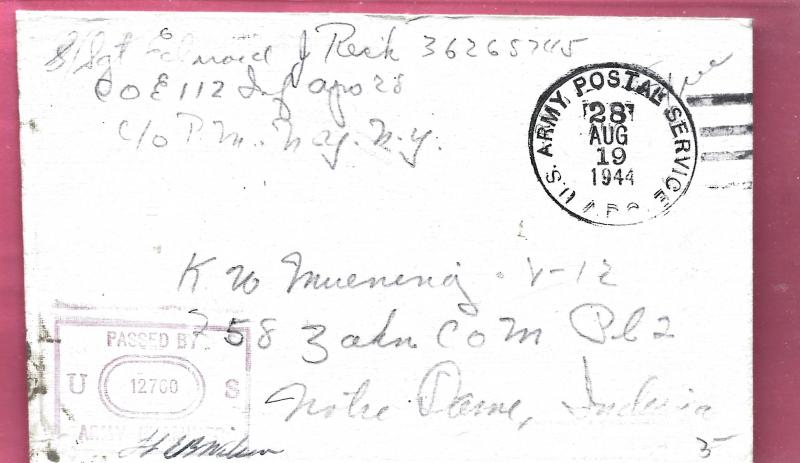 S/Sgt Edward J Resk 36265745
Co E 112 Inf apo 28
c/o P.M. N.Y. N.Y.
Free
U.S. ARMY POSTAL SERVICE
28
AUG
19
1944
A.P.O.
K W Muenzing V-12
758 Zahn Com Pl 2
Notre Dame, Indiana
PASSED BY
U 12760 S
ARMY EXAMINER
5